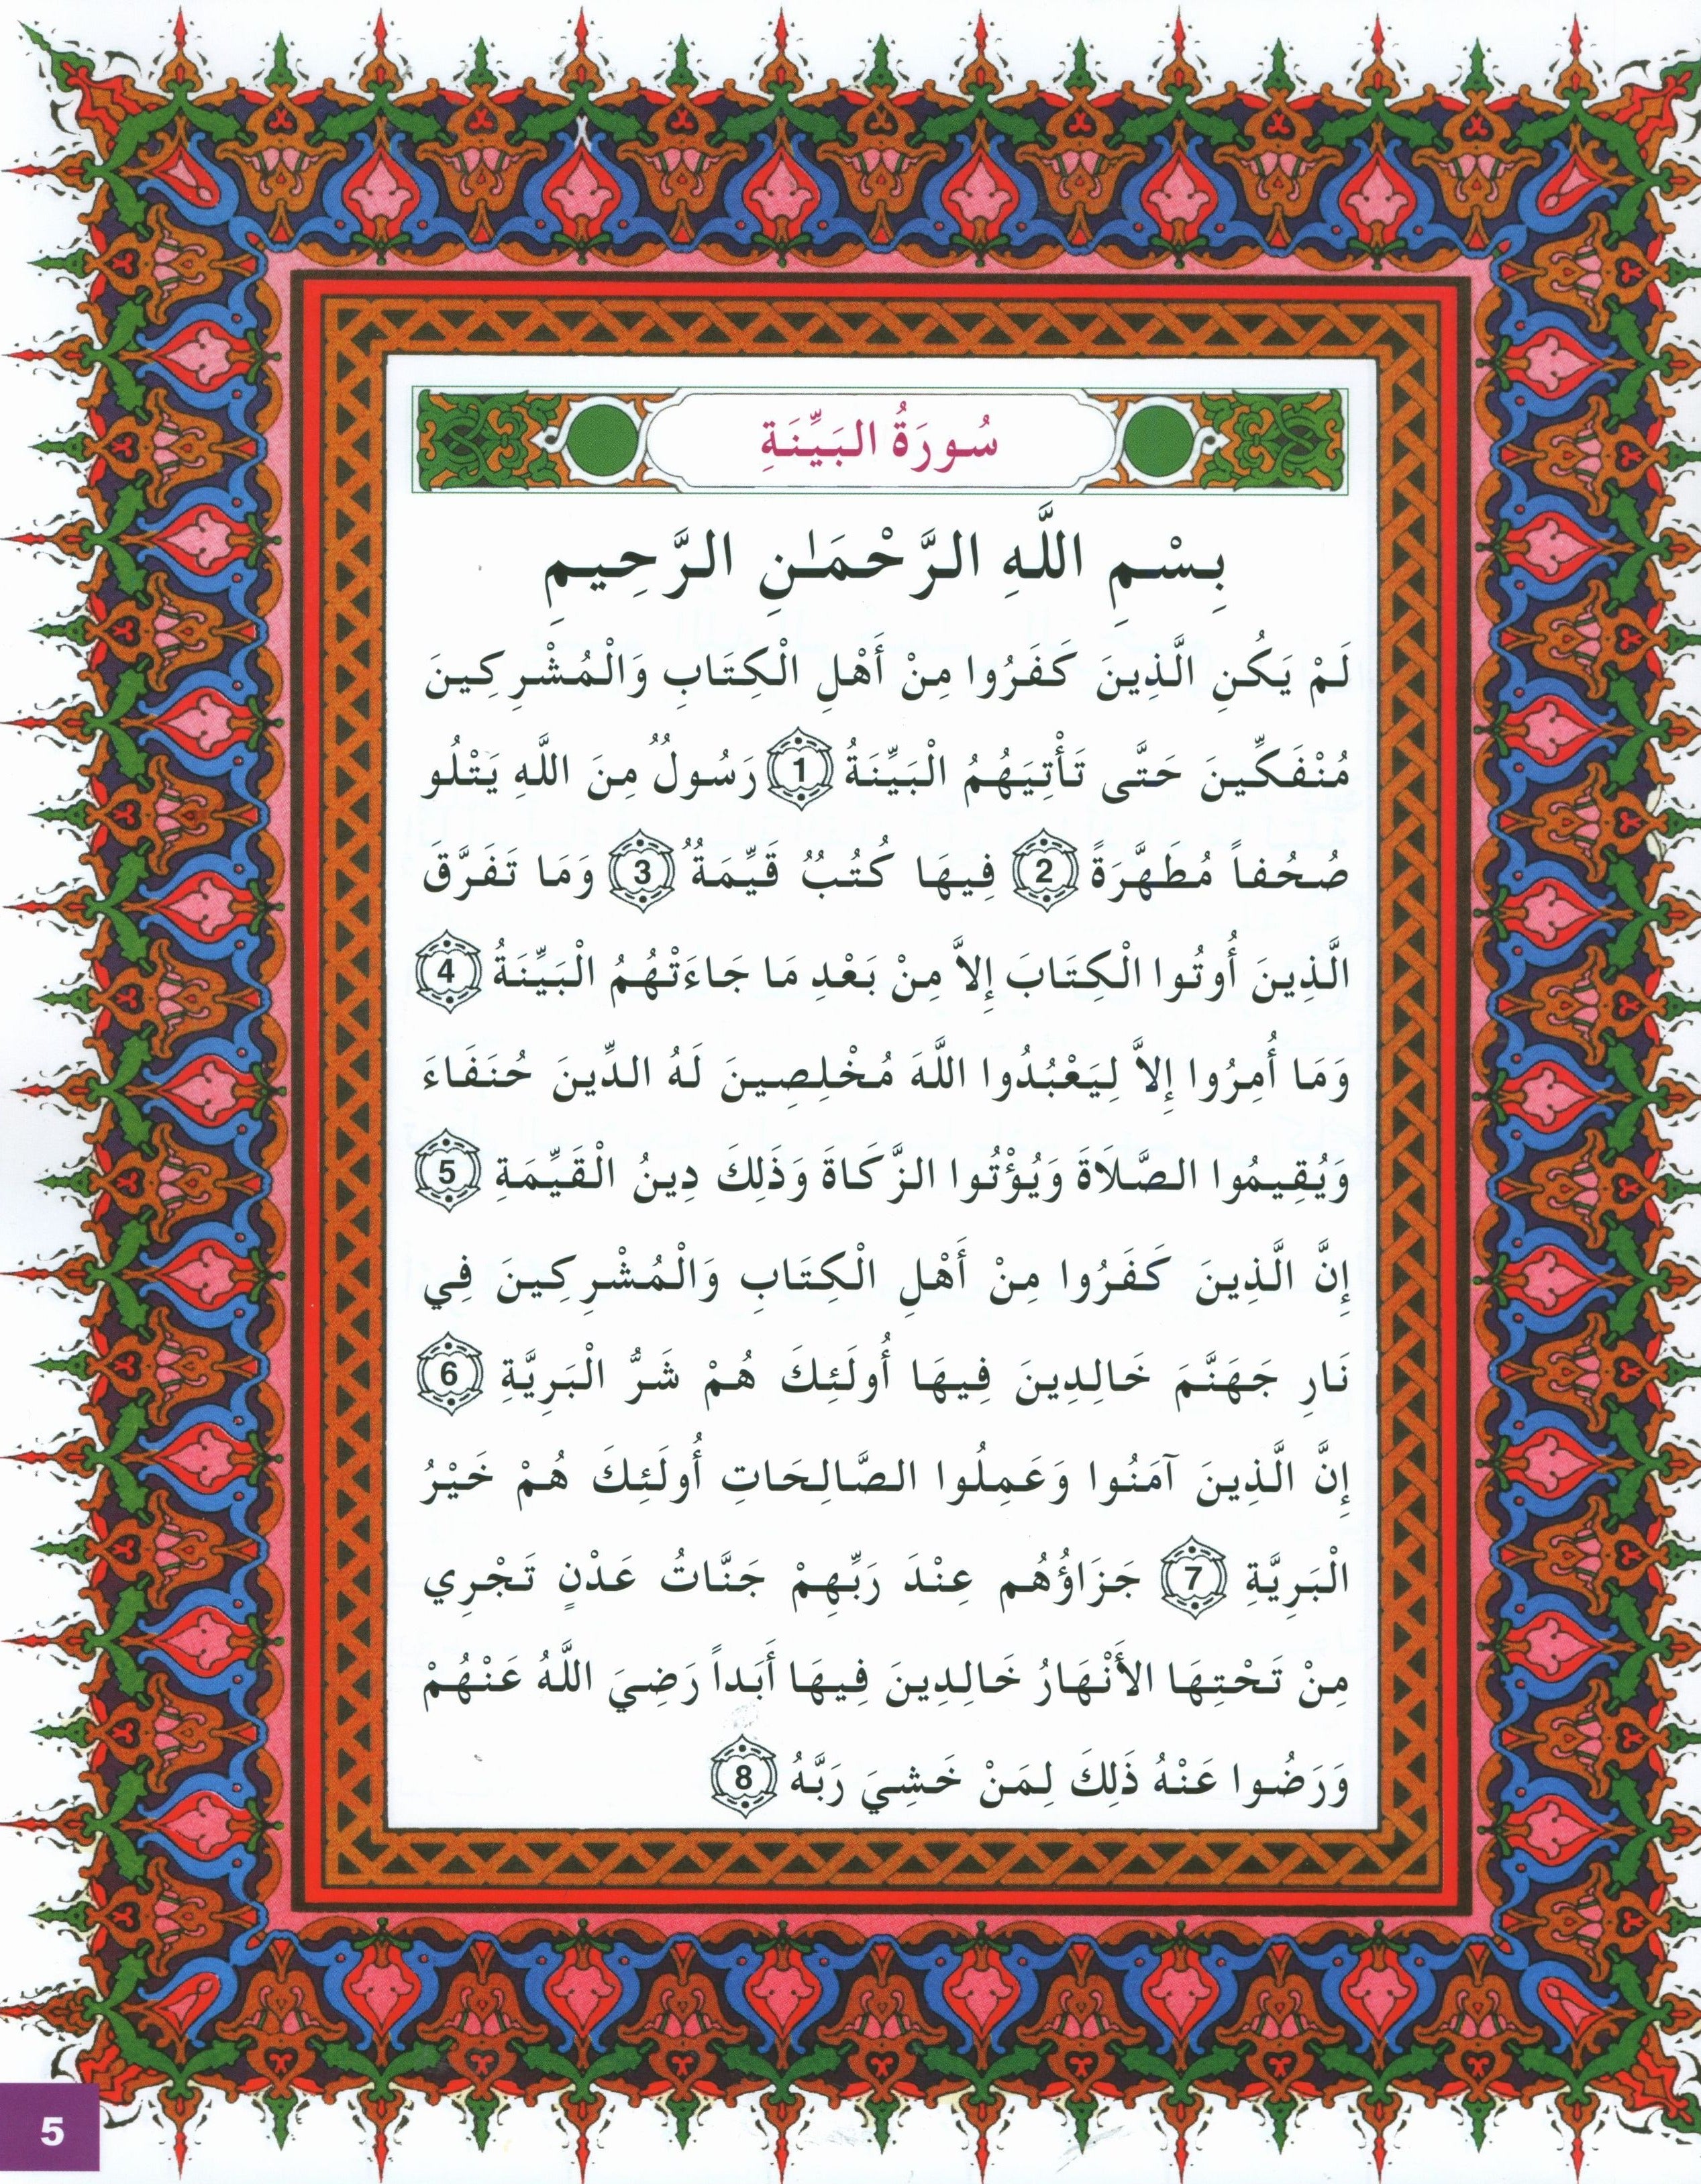 سُورَةُ البَيِّنَةِ
بِسْمِ اللَّهِ الرَّحْمَٰنِ الرَّحِيمِ
لَمْ يَكُنِ الَّذِينَ كَفَرُوا مِنْ أَهْلِ الْكِتَابِ وَالْمُشْرِكِينَ
مُنْفَكِّينَ حَتَّى تَأْتِيَهُمُ الْبَيِّنَةُ 1 رَسُولٌ مِنَ اللَّهِ يَتْلُو
صُحُفاً مُطَهَّرَةً 2 فِيهَا كُتُبٌ قَيِّمَةٌ 3 وَمَا تَفَرَّقَ
الَّذِينَ أُوتُوا الْكِتَابَ إِلاَّ مِنْ بَعْدِ مَا جَاءَتْهُمُ الْبَيِّنَةُ 4
وَمَا أُمِرُوا إِلاَّ لِيَعْبُدُوا اللَّهَ مُخْلِصِينَ لَهُ الدِّينَ حُنَفَاءَ
وَيُقِيمُوا الصَّلَاةَ وَيُؤْتُوا الزَّكَاةَ وَذَلِكَ دِينُ الْقَيِّمَةِ 5
إِنَّ الَّذِينَ كَفَرُوا مِنْ أَهْلِ الْكِتَابِ وَالْمُشْرِكِينَ فِي
نَارِ جَهَنَّمَ خَالِدِينَ فِيهَا أُولَئِكَ هُمْ شَرُّ الْبَرِيَّةِ 6
إِنَّ الَّذِينَ آمَنُوا وَعَمِلُوا الصَّالِحَاتِ أُولَئِكَ هُمْ خَيْرُ
الْبَرِيَّةِ 7 جَزَاؤُهُم عِنْدَ رَبِّهِمْ جَنَّاتُ عَدْنٍ تَجْرِي
مِنْ تَحْتِهَا الأَنْهَارُ خَالِدِينَ فِيهَا أَبَداً رَضِيَ اللَّهُ عَنْهُمْ
وَرَضُوا عَنْهُ ذَلِكَ لِمَنْ خَشِيَ رَبَّهُ 8
5